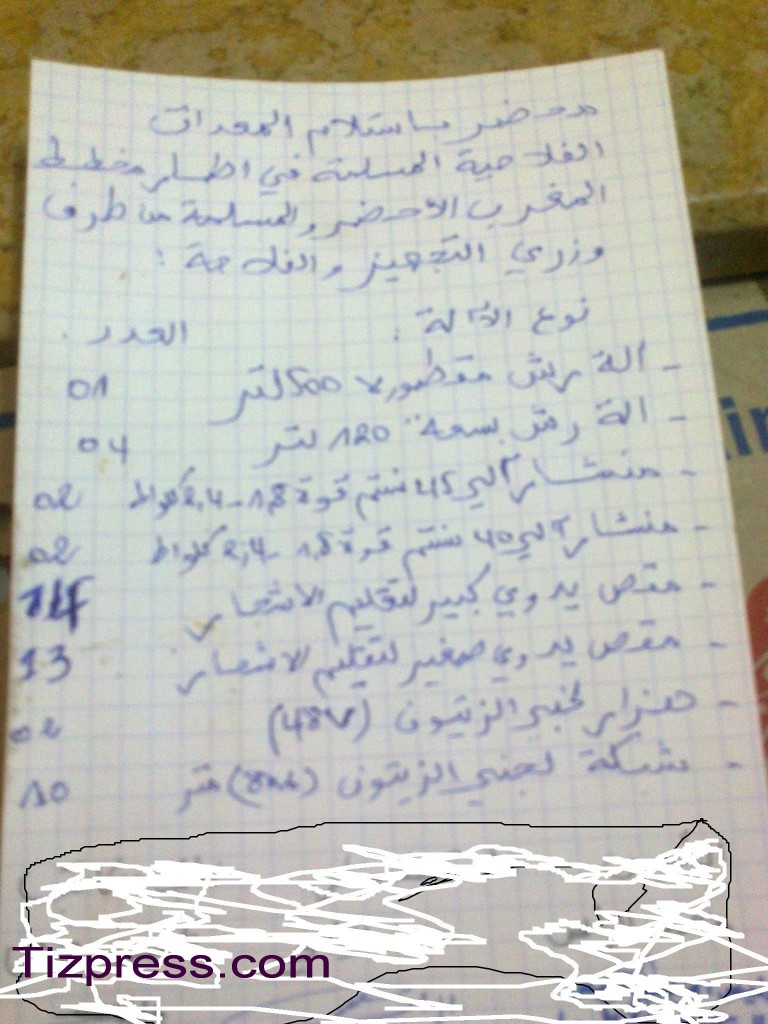 محضر باستلام المعدات
الفلاحية المسلمة في اطار مخطط
المغرب الأخضر والمسلمة من طرف
وزرتي التجهيز والفلاحة :
نوع الآلة : العدد .
- آلة رش مقطورة 500 لتر 01
- آلة رش بسعة 120 لتر 04
- منشار آلي 45 سنتم قوة 1,8-2,4 كلواط 02
- منشار آلي 40 سنتم قوة 1,8-2,4 كلواط 02
- مقص يدوي كبير لتقليم الاشجار 14
- مقص يدوي صغير لتقليم الاشجار 13
- هزاز لجني الزيتون (48V) 02
- شبكة لجني الزيتون (8x6) متر 10
Tizpress.com